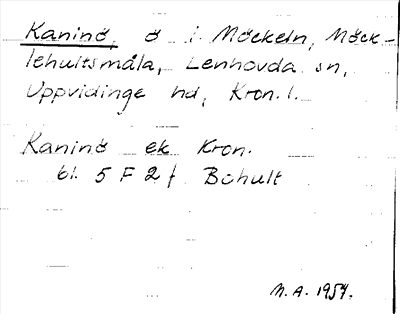 Kaninö, ö i Möckeln, Möck-
lehultsmåla, Lenhovda sn,
Uppvidinge hd, Kron. l.
Kaninö ek Kron.
bl. 5 F 2 f Bohult
M.A. 1954.